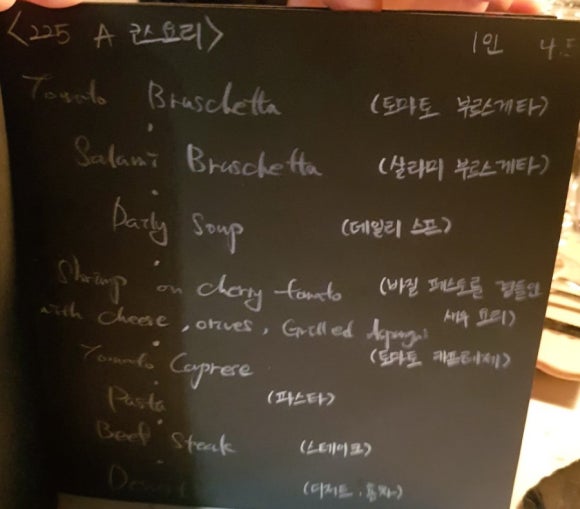 <225 A 코스요리> 1인 4.5
Tomato Bruschetta (토마토 부르스게타)
Salami Bruschetta (살라미 부르스게타)
Daily Soup (데일리 스프)
Shrimp on cherry tomato (바질 페스토를 곁들인
with cheese, olives, Grilled 새우 요리)
Tomato Caprese (토마토 카프레제)
Pasta (파스타)
Beef Steak (스테이크)
(디저트,